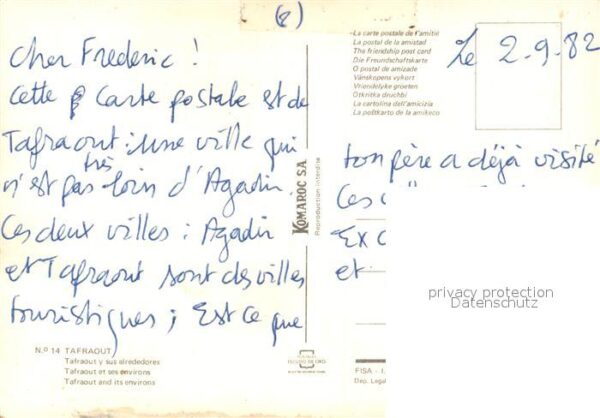 (8)
Cher Frederic !
Cette Carte postale est de
Tafraout : une ville qui
n'est pas très loin d'Agadir.
Ces deux villes : Agadir
et Tafraout sont des villes
touristiques ; Est ce que
Nº 14 TAFRAOUT
Tafraout y sus alrededores
Tafraout et ses environs
Tafraout and its environs
KOMAROC S.A.
Reproduction interdite
La carte postale de l'amitié
La postal de la amistad
The friendship post card
Die Freundschaftskarte
O postal de amizade
Vänskapens vykort
Vriendelyke groeten
Otkritka druchbi
La cartolina dell'amicizia
La poŝtkarto de la amikeco
Le 2.9.82
ton père a déjà visité
Ces
et
privacy protection
Datenschutz
FISA - I.
Dep. Legal